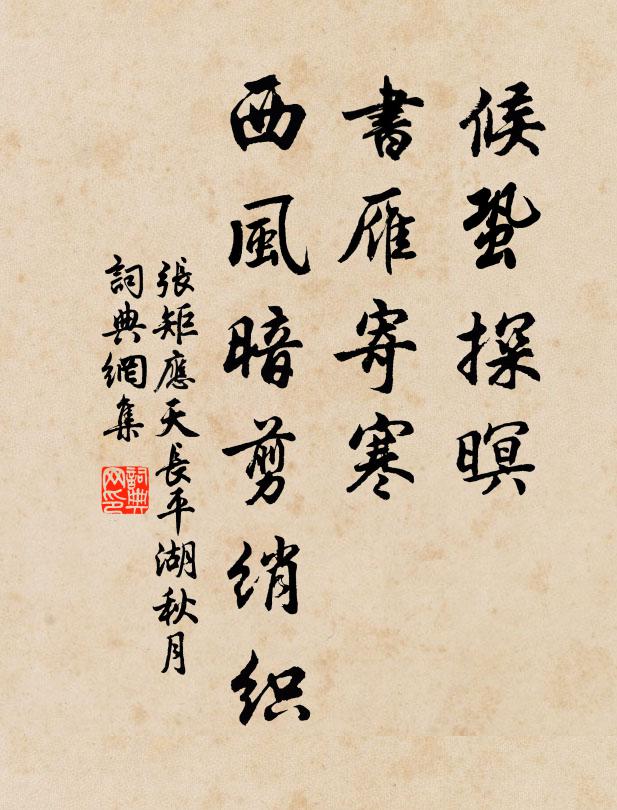 候蛩探暝
書雁寄寒
西風暗剪綃织
張矩應天長平湖秋月
詞典網集
詞典网印